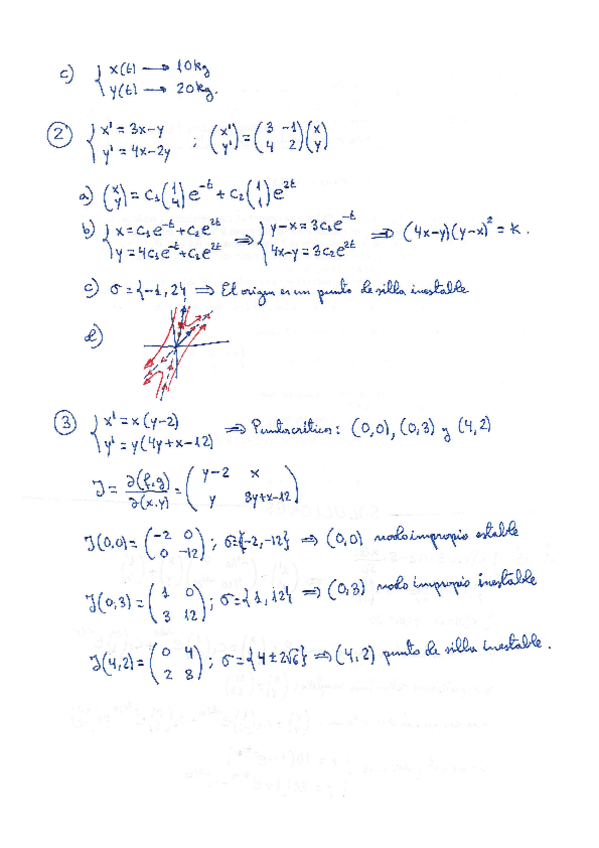 c) { x(t) → 10kg
y(t) → 20kg.
② { x' = 3x-y
y' = 4x-2y ; (x' y') = (3 -1 4 2)(x y)
a) (x y) = c₁(1 4)e^-t + c₂(1 1)e^2t
b) { x = c₁e^-t + c₂e^2t
y = 4c₁e^-t + c₂e^2t ⇒ { y-x = 3c₁e^-t
4x-y = 3c₂e^2t ⇒ (4x-y)(y-x)² = k.
c) σ = {-1, 2} ⇒ El origen es un punto de silla inestable
d)
③ { x' = x(y-2)
y' = y(4y+x-12) ⇒ Puntos críticos: (0,0), (0,3) y (4,2)
J = ∂(f,g)/∂(x,y) = (y-2 x
y 8y+x-12)
J(0,0) = (-2 0
0 -12) ; σ={-2,-12} ⇒ (0,0) nodo impropio estable
J(0,3) = (1 0
3 12) ; σ={1,12} ⇒ (0,3) nodo impropio inestable
J(4,2) = (0 4
2 8) ; σ={4±2√6} ⇒ (4,2) punto de silla inestable.